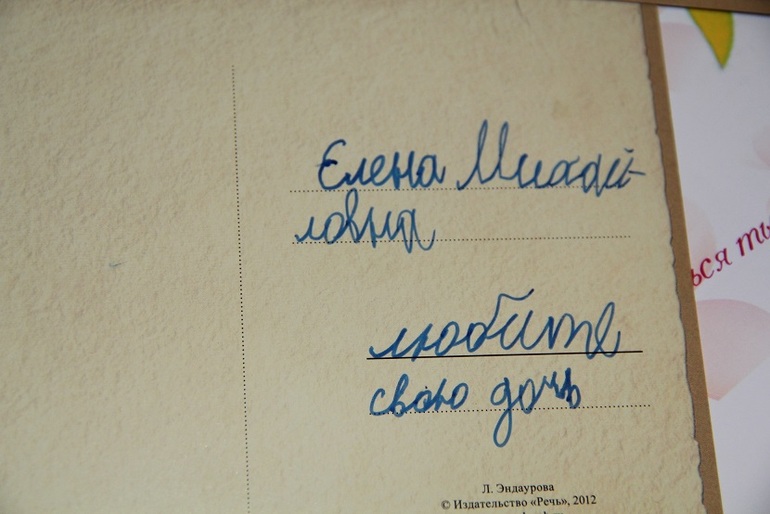 Елена Михай-
ловна
любите
свою дочь
Л. Эндаурова
© Издательство «Речь», 2012
ься ты